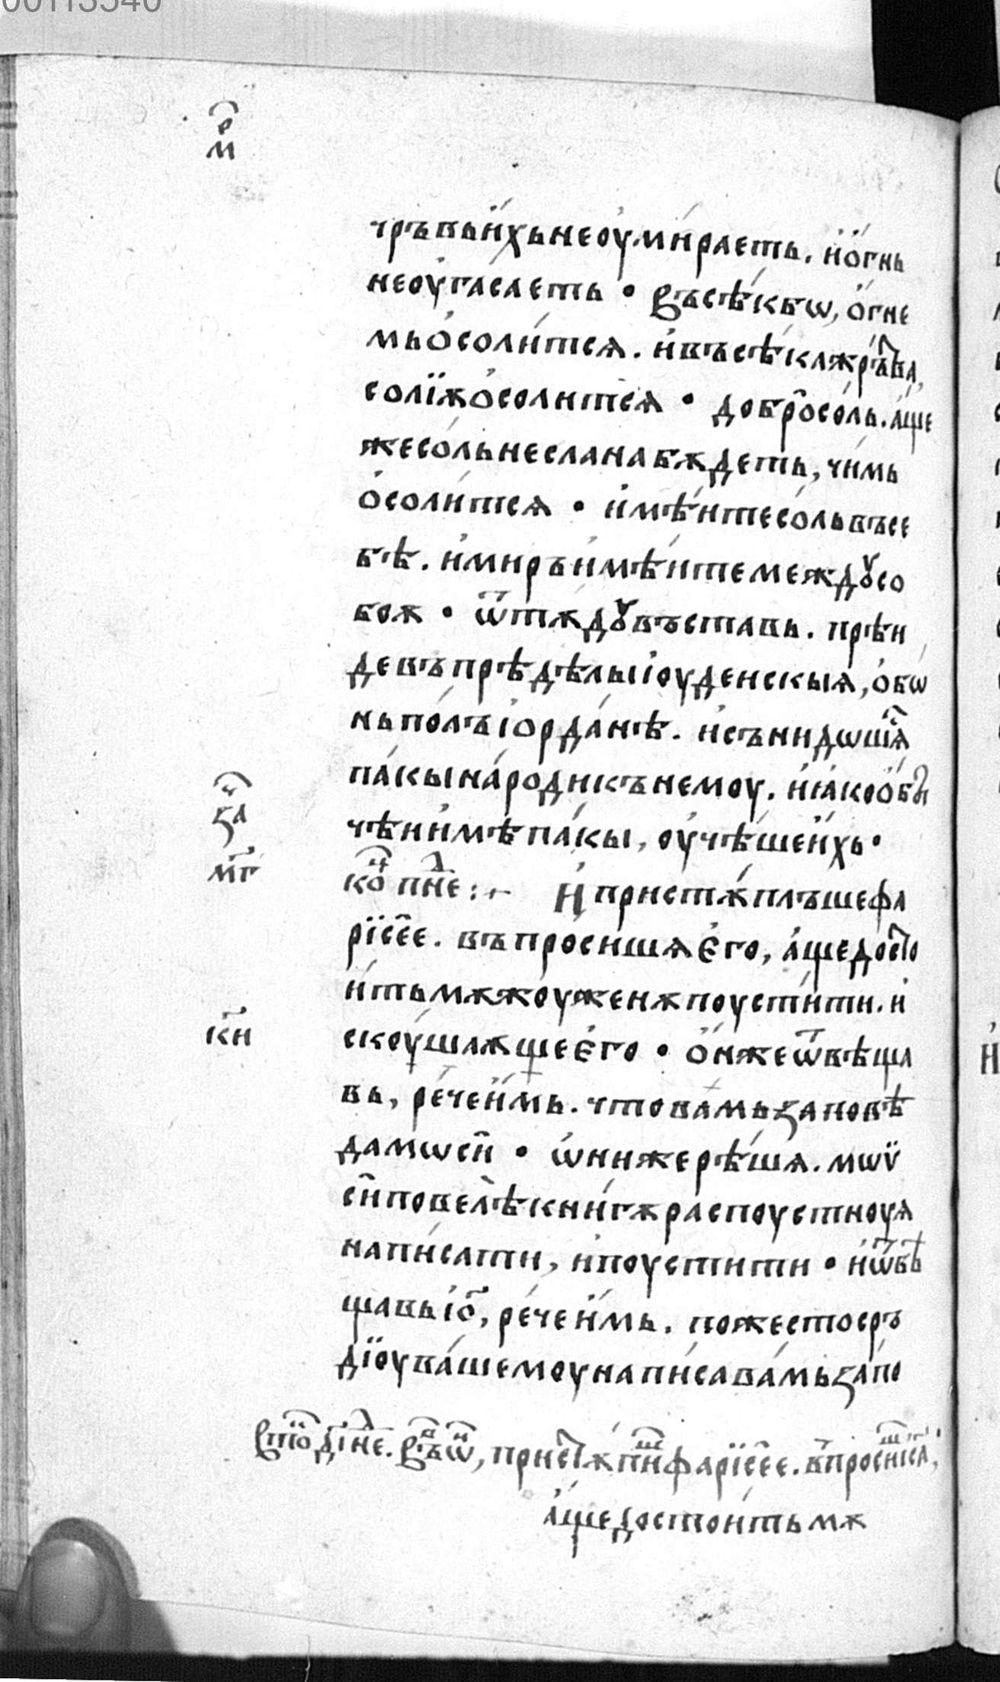 00113540
р҃м
чръвь и҆́хь не оу҆ми́раеть. и҆ ѻ҆́гнь
не оу҆гасаеть • Въсѣ́къ бѡ, ѻ҆́гне
мь ѻ҆соли́тсѧ. и҆ въсѣ́ка жрътва
солїѫ ѻ҆солитсѧ • добро̑ со́ль. а҆́ще
же со́ль неслана бѫдеть, чи́мь
ѻ҆соли́тсѧ • и҆мѣ́ите со́ль въ се
бѣ. и҆ миръ и҆мѣ́ите между̀ со
боѫ • ѿтѫдꙋ въставь. прѣи
де въ прѣдѣлы і҆оуденскыѧ, ѻ҆бѡ
нь по́лъ і҆ѻрда́нѣ. и҆ сънидѡшѧс
па́кы на́роди къ немоу. и҆ ꙗ҆ко ѻ҆бы
чѣи и҆мѣ́ па́кы, оу҆чѣ́ше и҆́хь •
за҇
мг҃
ко҇ не҇д :⁓ И҆ присто́ѫплъше фа
рїсе́е. въпроси́шѧ є҆го, а҆́ще досто
и҆ть мѫжоу женѫ поусти́ти. и҆
кн҃
скоу́шаѫще є҆го • ѻ҆́нже ѿвѣща
вь, ре́че и҆́мь. что ва́мь заповѣ
да мѡсі҆и • ѡ҆ниже рѣ́шѧ. мѡѵ
сі҆и повелѣ̀ кни́гѫ распоустноуѧ
напи́сати, и҆ поустити • и҆ ѿвѣ
щавь і҆с҃, ре́че и҆́мь. по жестосръ
дїоу ва́шемоу напи́са ва́мь за́по
а҆́ще достоить мѫ